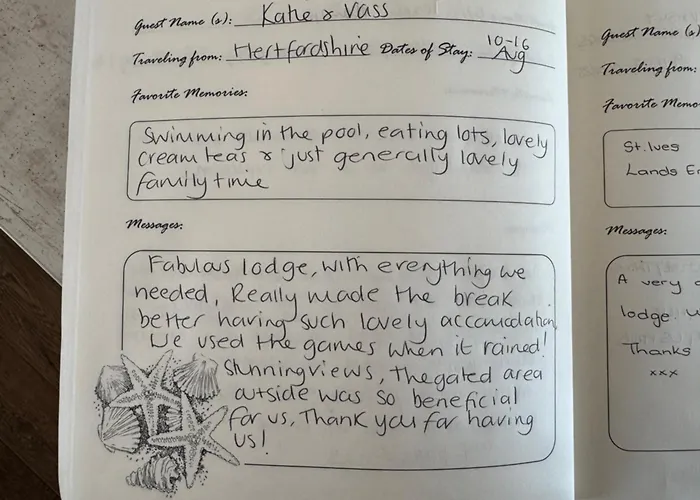 Guest Name (s): Katie & Vass
Traveling from: Hertfordshire Dates of Stay: 10-16 Aug
Favorite Memories:
Swimming in the pool, eating lots, lovely
cream teas & just generally lovely
family time
Messages:
Fabulous lodge, with everything we
needed, Really made the break
better having such lovely accomodation
We used the games when it rained!
Stunning views, The gated area
outside was so beneficial
for us, Thank you for having
us!
Guest Name (s)
Traveling from:
Favorite Memo
St. Ives
Lands En
Messages:
A very
lodge
Thanks
xxx